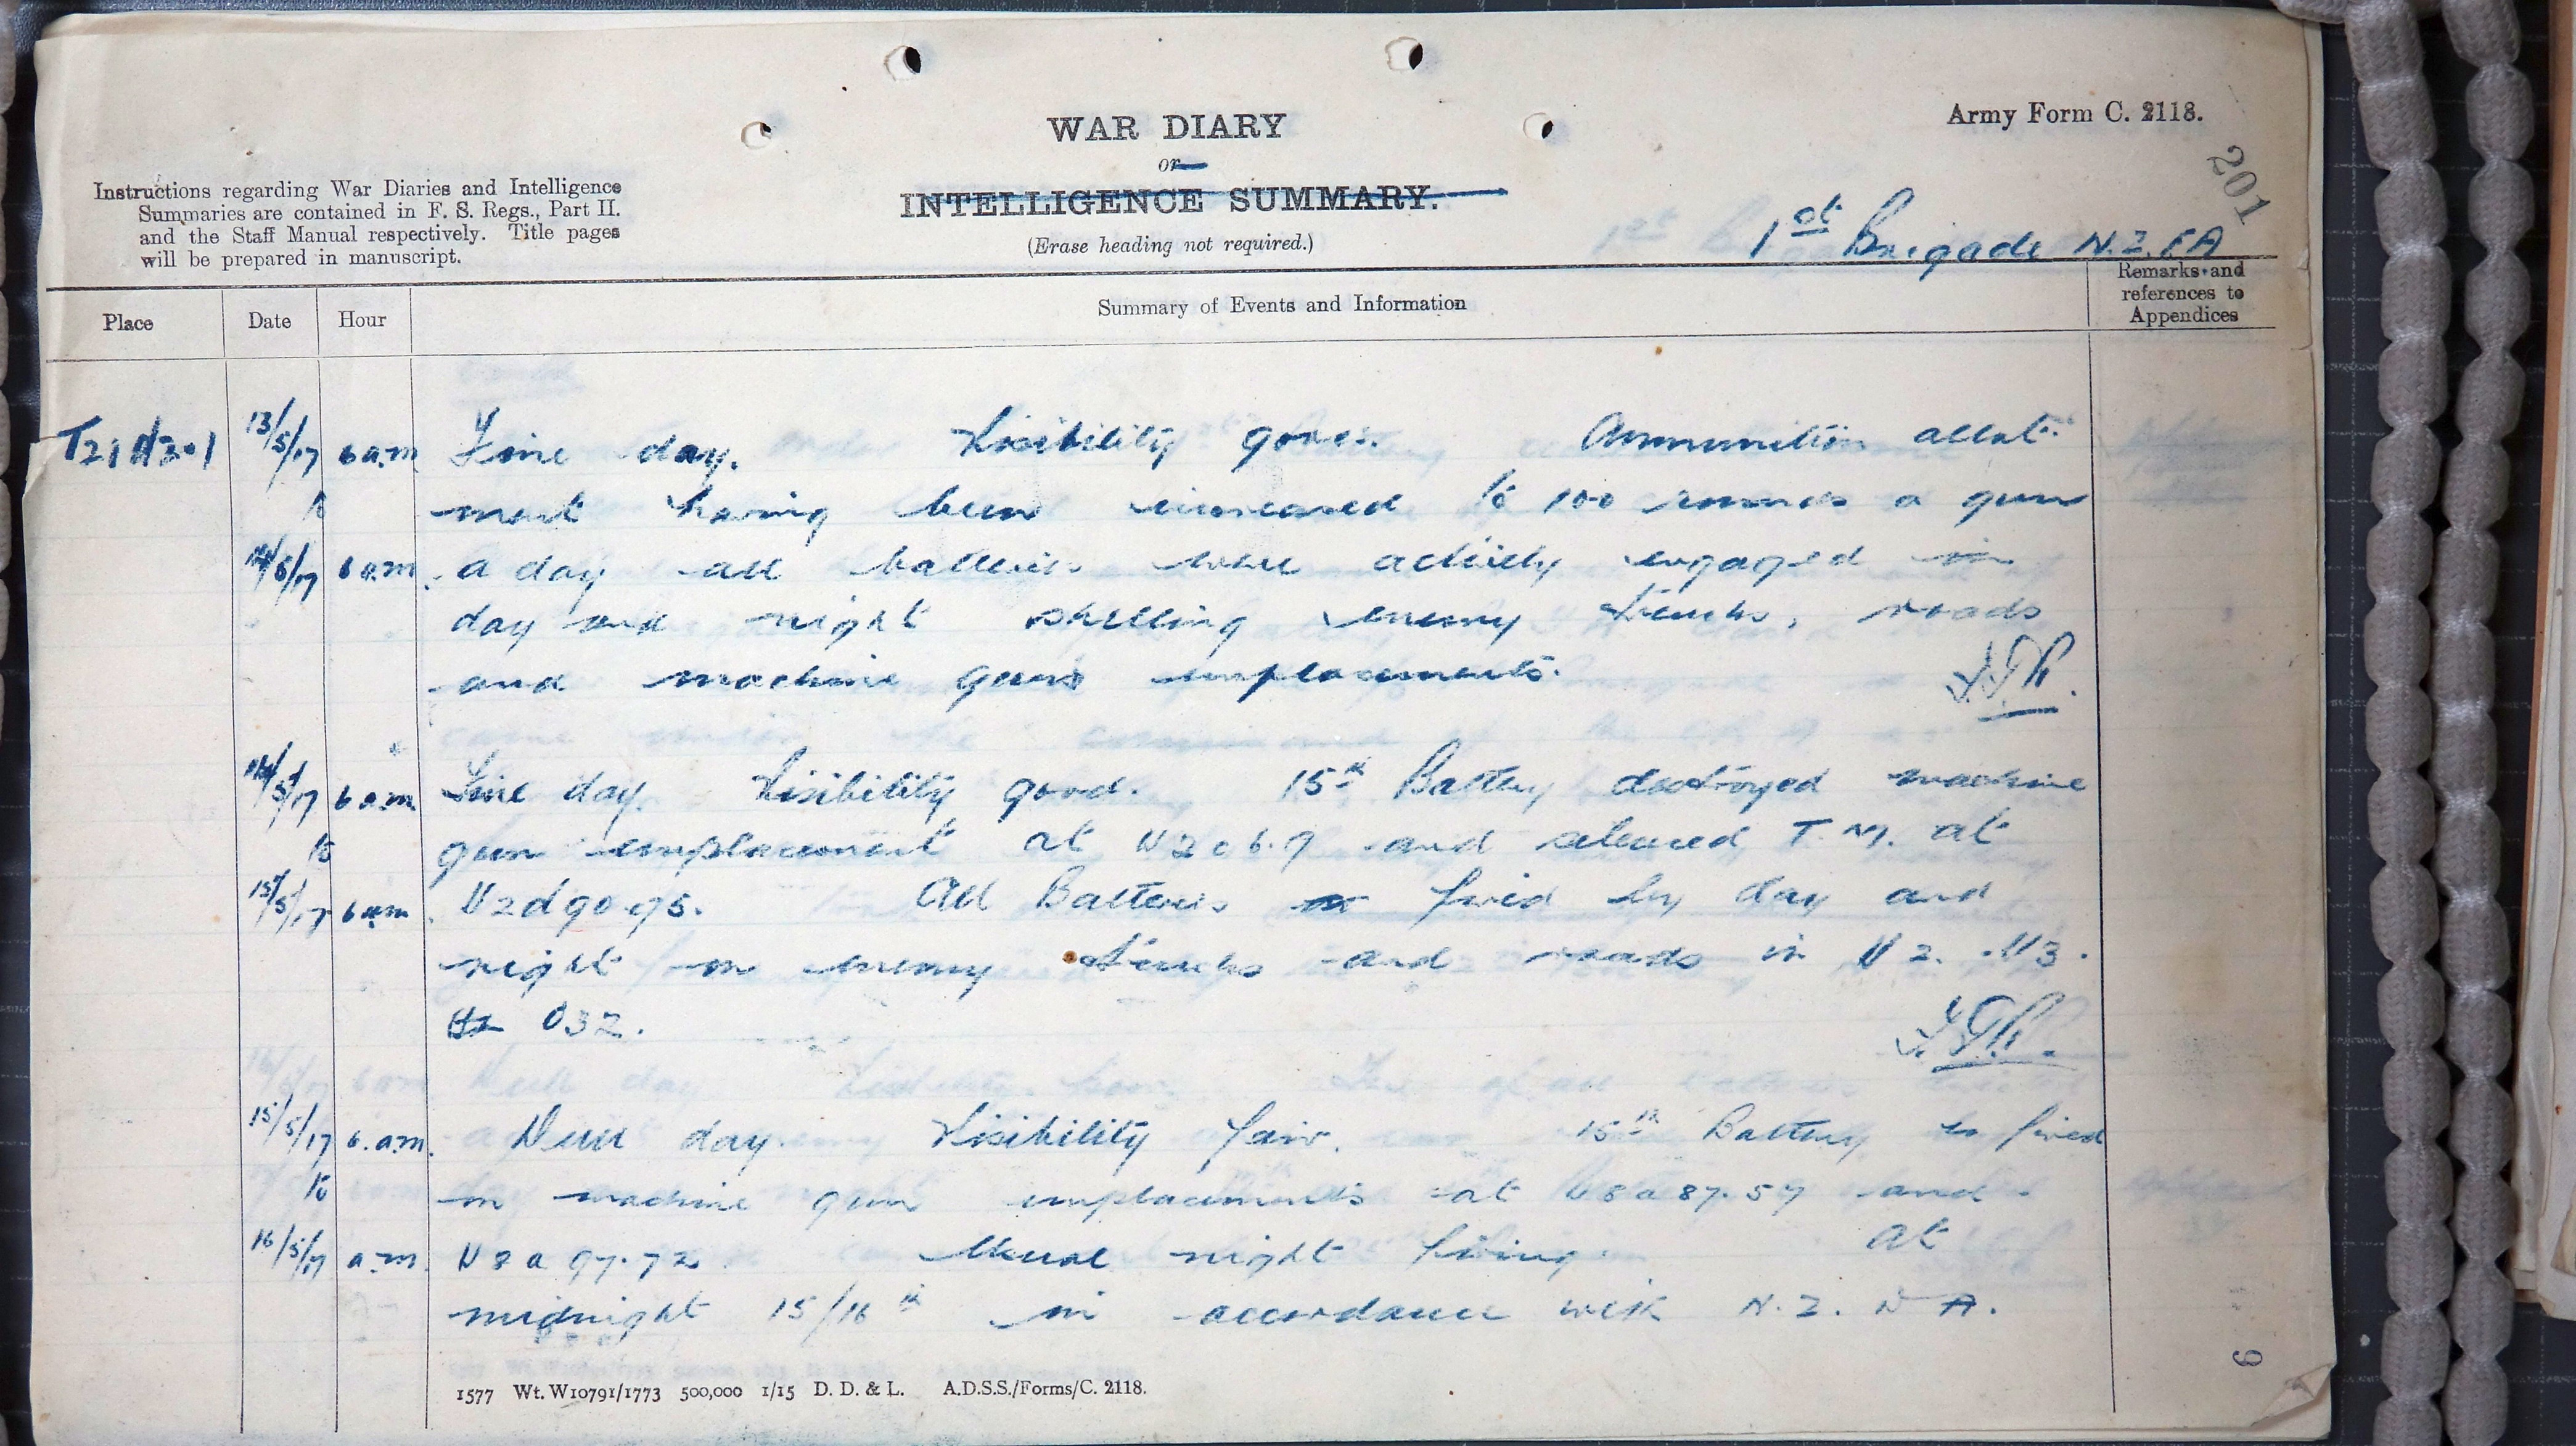 Army Form C. 2118.
WAR DIARY
or
INTELLIGENCE SUMMARY.
(Erase heading not required.)
Instructions regarding War Diaries and Intelligence
Summaries are contained in F. S. Regs., Part II.
and the Staff Manual respectively. Title pages
will be prepared in manuscript.
201
1st Brigade N.Z.FA
Place Date Hour Summary of Events and Information Remarks and references to Appendices
13/5/17 6 a.m Fine day. Visibility good. Ammunition allot-
to ment having been increased to 100 rounds a gun
14/5/17 6 a.m. a day all batteries were actively engaged in
day and night shelling enemy trenchs, roads
and machine guns emplacements.
14/5/17 6 a.m Fine day. Visibility good. 15th Battery destroyed machine
to gun emplacement at U2c6.9 and silenced T.M. at
15/5/17 6 am. U2d90.95. All Batteries fired by day and
night on enemy trenchs and roads in U2. U3.
O32.
15/5/17 6.a.m. Dull day. Visibility fair. 15th Battery fired
to on machine gun emplacements at U8a87.57 and
16/5/17 a.m. U8a97.72 Usual night firing. At
midnight 15/16th in accordance with N.Z. D A.
1577 Wt. W10791/1773 500,000 1/15 D. D. & L. A.D.S.S./Forms/C. 2118.